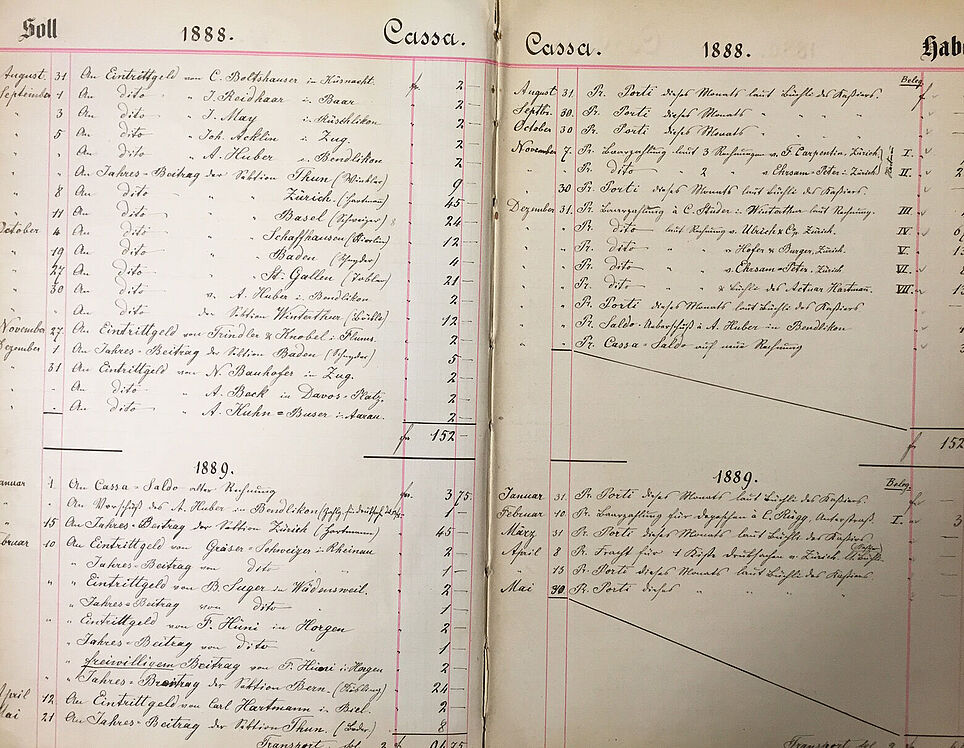 Soll 1888. Cassa.
August 31 An Eintrittgeld von C. Boltshauser in Küsnacht fr. 2 —
September 1 An dito " J. Reidhaar i. Baar 2 —
" 3 An dito " J. May i. Rüschlikon 2 —
" 5 An dito " Joh. Acklin i. Zug. 2 —
" " An dito " A. Huber i. Bendlikon 2 —
" " An Jahres-Beitrag der Sektion Thun (Winkler) 9 —
" 8 An dito " " Zürich. (Hartmann) 45 —
" 11 An dito " " Basel (Schweizer) 24 —
October 4 An dito " " Schaffhausen 12 —
" 19 An dito " " Baden (Schnyder) 4 —
" 27 An dito " " St. Gallen 21 —
" 30 An dito v. A. Huber i. Bendlikon 2 —
" " An dito der Sektion Winterthur 12 —
November 27 An Eintrittgeld von Trindler & Knobel i. Flums. 2 —
Dezember 1 An Jahres-Beitrag der Sektion Baden (Schnyder) 5 —
" 31 An Eintrittgeld von N. Bauhofer in Zug. 2 —
" - An dito " A. Beck in Davos-Platz. 2 —
" - An dito " A. Kuhn-Buser i. Aarau. 2 —
fr 152 —
1889.
Januar 1. An Cassa-Saldo alter Rechnung fr. 3 75
" " An Vorschuß des A. Huber in Bendlikon 1 —
" 15 An Jahres-Beitrag der Sektion Zürich (Hartmann) 45 —
Februar 10 An Eintrittgeld von Gräser-Schweizer i. Rheinau 2 —
" Jahres-Beitrag von dito 1 —
" Eintrittgeld von B. Suger in Wädensweil. 2 —
" Jahres-Beitrag von dito 1 —
" Eintrittgeld von F. Hüni in Horgen 2 —
" Jahres-Beitrag von dito 1 —
" freiwilligem Beitrag von F. Hüni i. Horgen 2 —
" Jahres-Beitrag der Sektion Bern. 24 —
April 12 An Eintrittgeld von Carl Hartmann in Biel. 2 —
Mai 21 An Jahres-Beitrag der Sektion Thun. 8 —
Transport fol. 2 fr 75
Cassa. 1888. Habe
Beleg.
August 31. Pr. Porti dieses Monats laut Büchli des Kassiers. fr
Septbr. 30. Pr. Porti dieses Monats " " " "
October 30 Pr. Porti dieses Monats " " " "
November 7. Pr. Baarzahlung laut 3 Rechnungen v. F. Carpentier, Zürich I.
" " Pr. dito " 2 " v. Ehrsam-Peter, Zürich II.
" 30 Pr. Porti dieses Monats laut Büchli des Kassiers.
Dezember 31. Pr. Baarzahlung à C. Studer i. Winterthur laut Rechnung. III
" " Pr. dito laut Rechnung v. Ulrich & Cp. Zürich. IV
" " Pr. dito " " v. Hofer & Burger, Zürich. V.
" " Pr. dito " " v. Ehrsam-Peter, Zürich VI.
" " Pr. dito " " & Büchli des Actuar Hartmann. VII.
" " Pr. Porti dieses Monats laut Büchli des Kassiers
" " Pr. Saldo-Ueberschuß à A. Huber in Bendlikon
" " Pr. Cassa-Saldo auf neue Rechnung
fr 152
1889. Beleg.
Januar 31. Pr. Porti dieses Monats laut Büchli des Kassiers. fr
Februar 10. Pr. Baarzahlung für Depeschen à C. Rüegg I.
März 31 Pr. Porti dieses Monats laut Büchli des Kassiers
April 8 Pr. Fracht für 1 Kiste Drucksachen v. Zürich
" 13 Pr. Porti dieses Monats laut Büchli des Kassiers
Mai 30 Pr. Porti dieses " " " "
Transport fol. 2